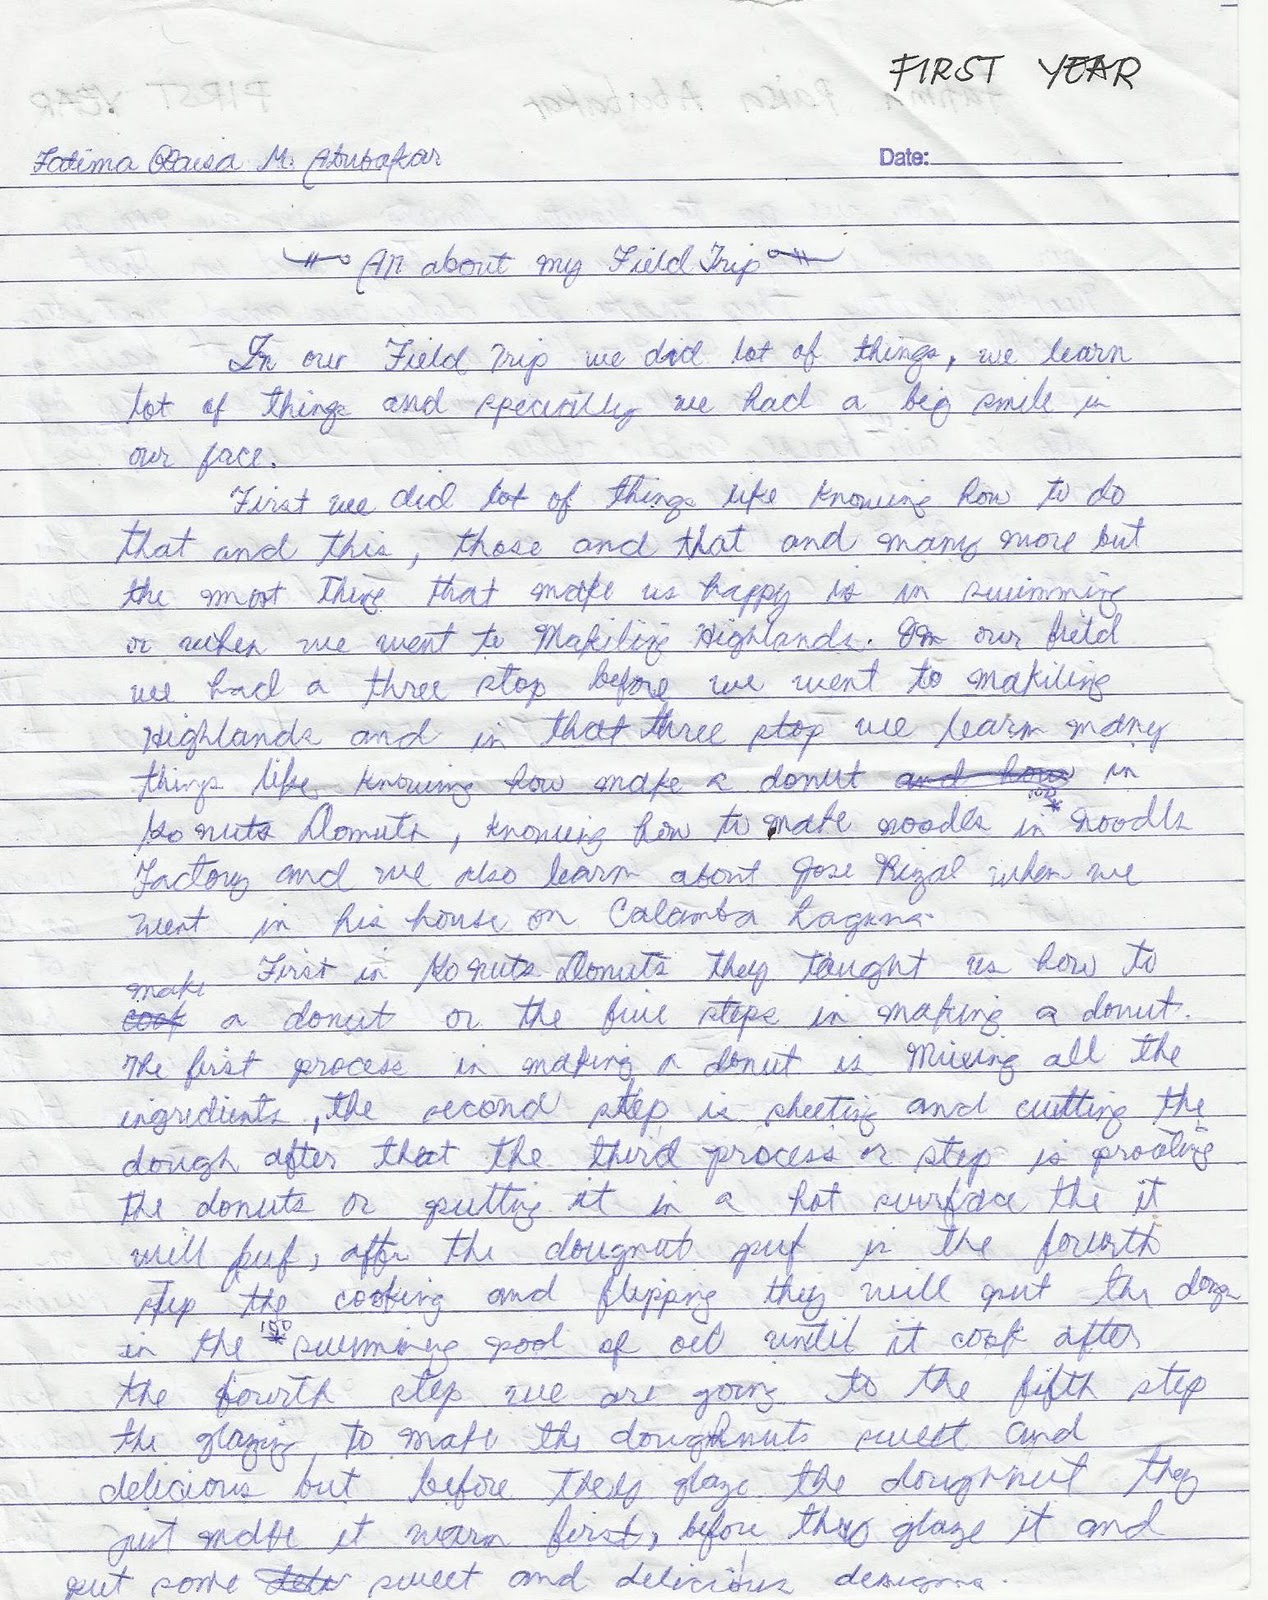 FIRST YEAR
Fatima Raisa M. Abubakar
Date:
All about my Field Trip
In our Field Trip we did lot of things, we learn
lot of things and specially we had a big smile in
our face.
First we did lot of things like knowing how to do
that and this, those and that and many more but
the most thing that make us happy is in swimming
or when we went to Makiling Highlands. In our field
we had a three stop before we went to makiling
Highlands and in that three stop we learn many
things like knowing how make a donut and how in
Go nuts Donuts, knowing how to make noodls in noodls
Factory and we also learn about Jose Rizal when we
went in his house on Calamba Laguna.
First in Go nuts Donuts they taught us how to
make
cook a donut or the five steps in making a donut.
The first process in making a donut is Mixing all the
ingredients, the second step is sheeting and cutting the
dough after that the third process or step is
the donuts or putting it in a hot surface the it
will puf, after the dougnut puf is the fourth
step the cooking and flipping they will put the
in the swimming pool of oil until it cook after
the fourth step we are going to the fifth step
the glazing to make the doughnuts sweet and
delicious but before they glaze the doughnut they
just make it warm first, before they glaze it and
put some sweet and delicious designs.